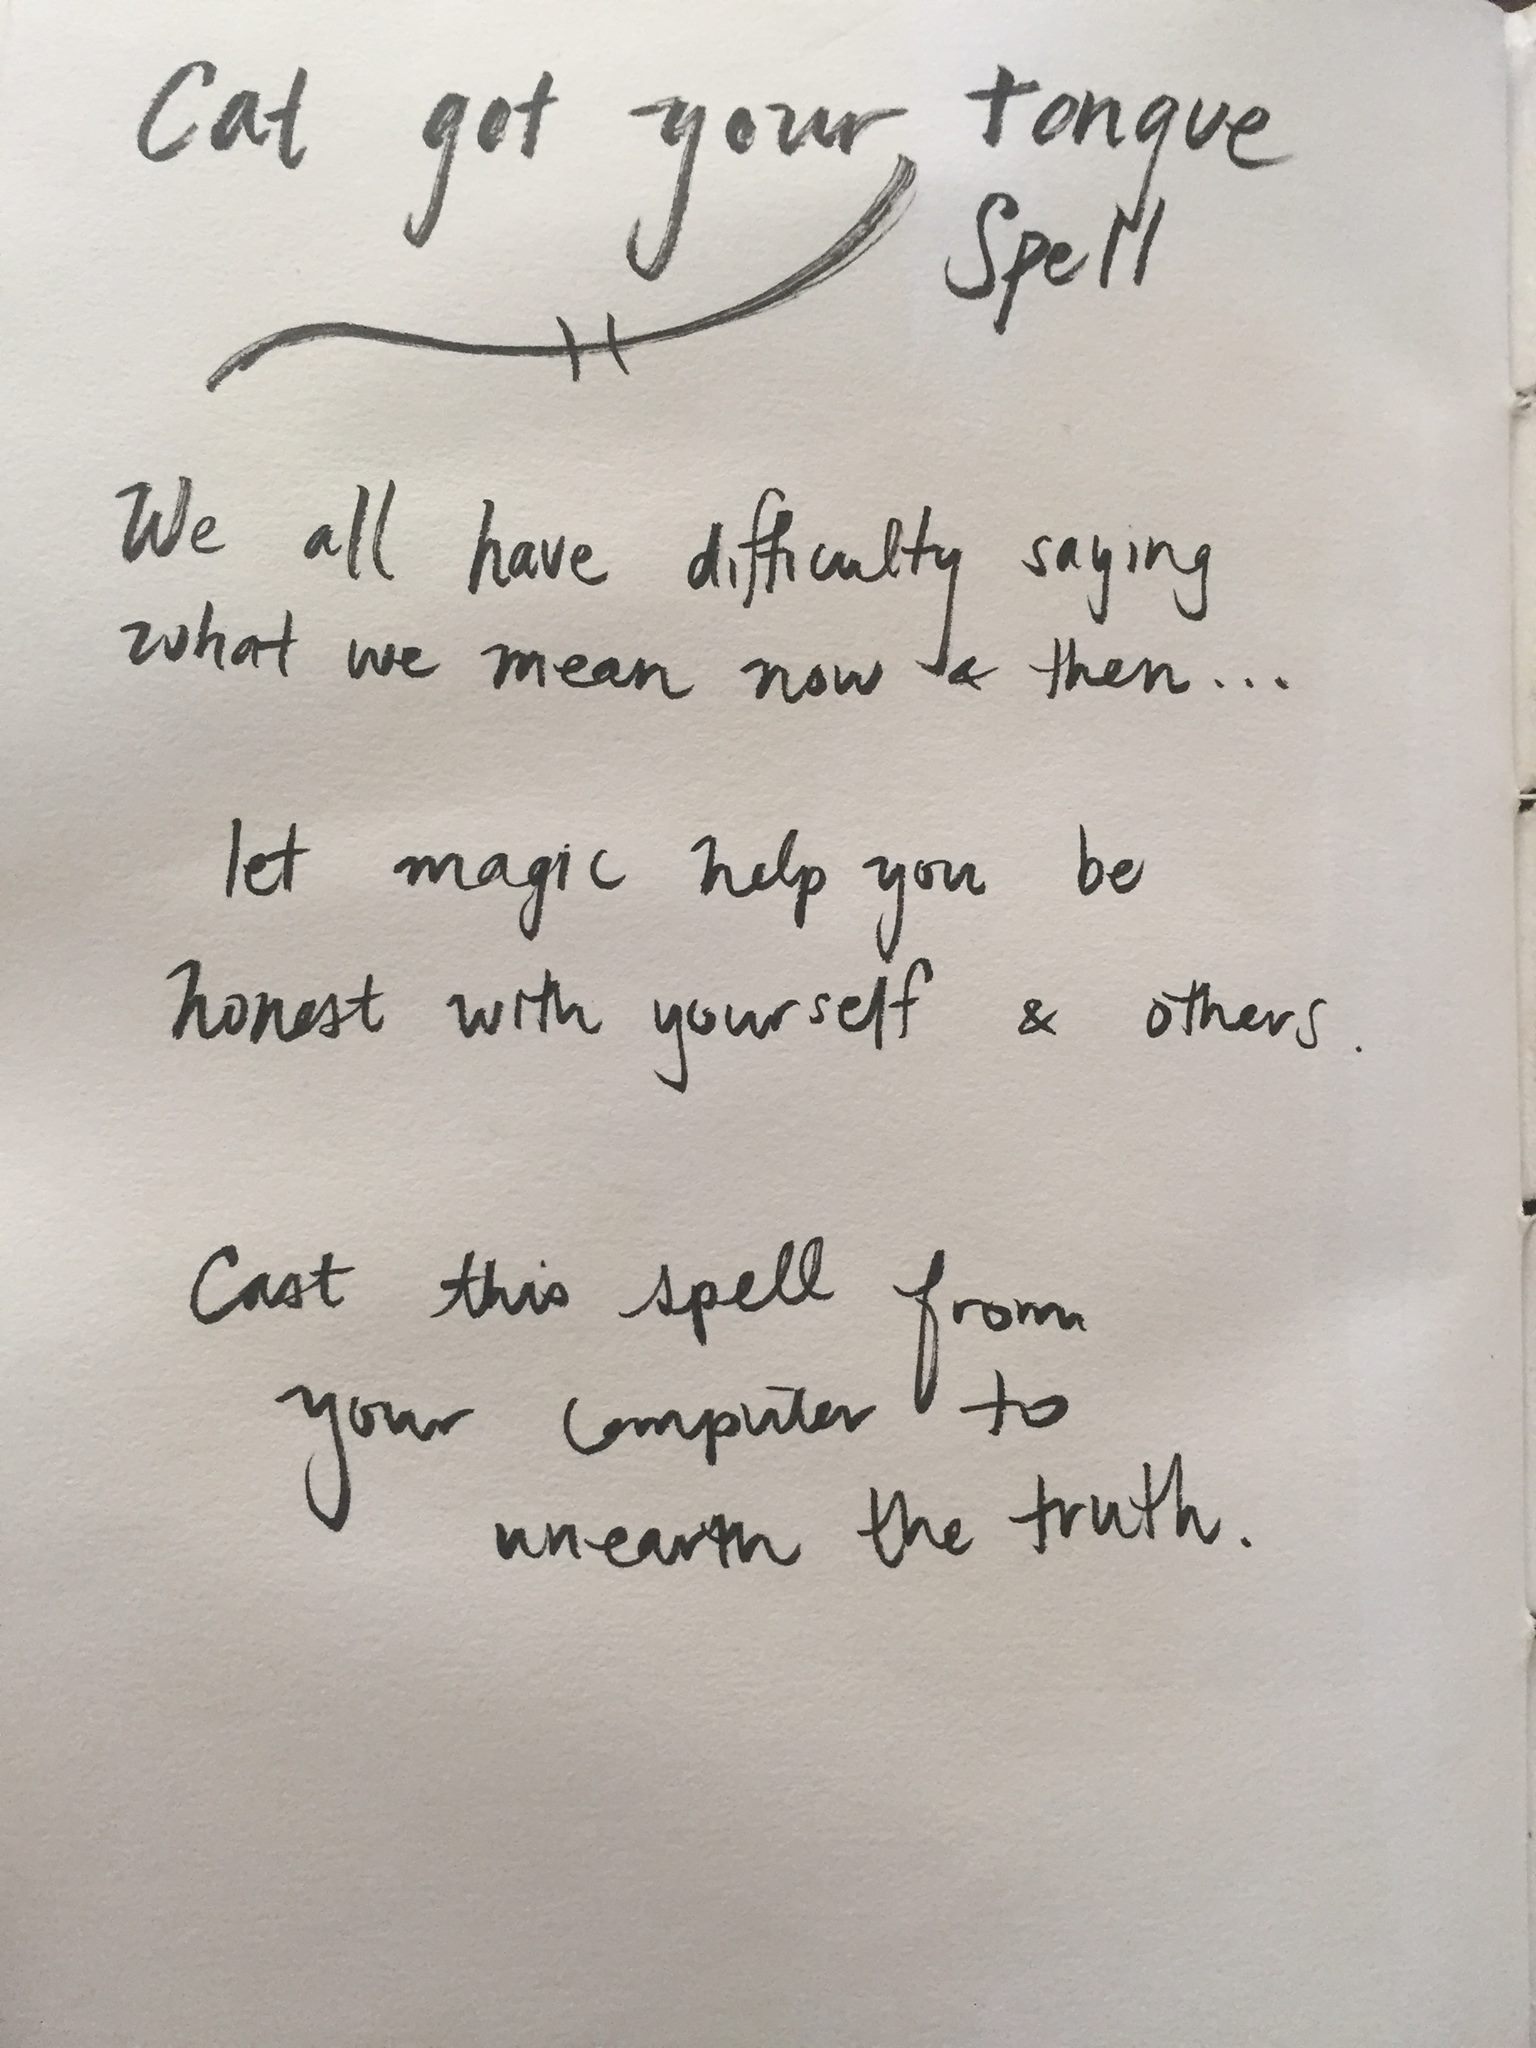 Cat got your tongue
Spell
We all have difficulty saying
what we mean now & then...
let magic help you be
honest with yourself & others.
Cast this spell from
your computer to
unearth the truth.